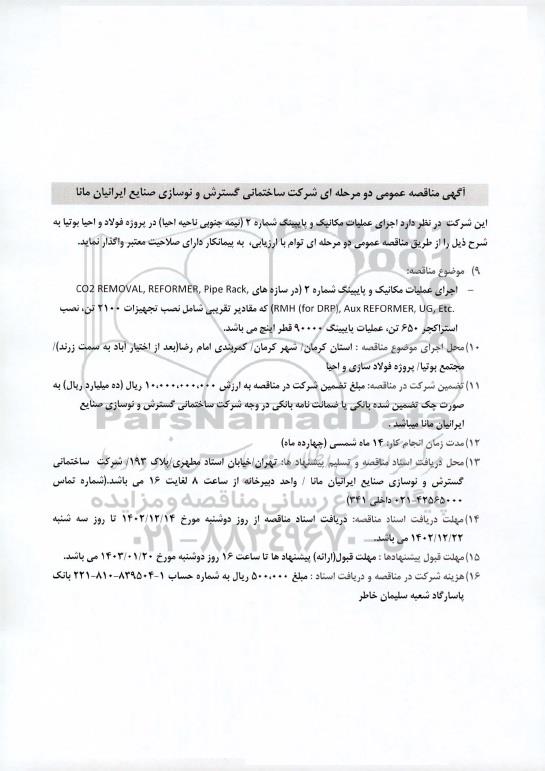 آگهی مناقصه عمومی دو مرحله ای شرکت ساختمانی گسترش و نوسازی صنایع ایرانیان مانا
این شرکت در نظر دارد اجرای عملیات مکانیک و پایپینگ شماره ۲ (نیمه جنوبی ناحیه احیا) در پروژه فولاد و احیا بوتیا به
شرح ذیل را از طریق مناقصه عمومی دو مرحله ای توام با ارزیابی، به پیمانکار دارای صلاحیت معتبر واگذار نماید.
۹) موضوع مناقصه:
– اجرای عملیات مکانیک و پایپینگ شماره ۲ (در سازه های CO2 REMOVAL, REFORMER, Pipe Rack,
RMH (for DRP), Aux REFORMER, UG, Etc.) که مقادیر تقریبی شامل نصب تجهیزات ۲۱۰۰ تن، نصب
استراکچر ۶۵۰ تن، عملیات پایپینگ ۹۰۰۰۰ قطر اینچ می باشد.
۱۰) محل اجرای موضوع مناقصه : استان کرمان/ شهر کرمان/ کمربندی امام رضا(بعد از اختیار آباد به سمت زرند)/
مجتمع بوتیا/ پروژه فولاد سازی و احیا
۱۱) تضمین شرکت در مناقصه: مبلغ تضمین شرکت در مناقصه به ارزش ۱۰،۰۰۰،۰۰۰،۰۰۰ ریال (ده میلیارد ریال) به
صورت چک تضمین شده بانکی یا ضمانت نامه بانکی در وجه شرکت ساختمانی گسترش و نوسازی صنایع
ایرانیان مانا میباشد .
۱۲) مدت زمان انجام کار: ۱۴ ماه شمسی (چهارده ماه)
۱۳) محل دریافت اسناد مناقصه و تسلیم پیشنهاد ها: تهران/خیابان استاد مطهری/پلاک ۱۹۳/ شرکت ساختمانی
گسترش و نوسازی صنایع ایرانیان مانا / واحد دبیرخانه از ساعت ۸ لغایت ۱۶ می باشد.(شماره تماس
۰۲۱-۴۲۵۶۵۰۰۰ داخلی ۳۴۱)
۱۴) مهلت دریافت اسناد مناقصه: دریافت اسناد مناقصه از روز دوشنبه مورخ ۱۴۰۲/۱۲/۱۴ تا روز سه شنبه
۱۴۰۲/۱۲/۲۲ می باشد.
۱۵) مهلت قبول پیشنهادها : مهلت قبول(ارائه) پیشنهاد ها تا ساعت ۱۶ روز دوشنبه مورخ ۱۴۰۳/۰۱/۲۰ می باشد.
۱۶) هزینه شرکت در مناقصه و دریافت اسناد : مبلغ ۵۰۰،۰۰۰ ریال به شماره حساب ۱-۸۳۹۵۰۴-۸۱۰-۲۲۱ بانک
پاسارگاد شعبه سلیمان خاطر
ParsNamadData
۰۲۱-۸۸۳۴۹۶۷۰